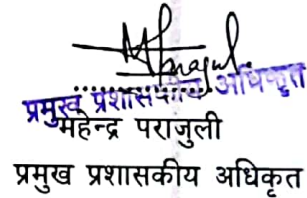 प्रमुख प्रशासकीय अधिकृत
महेन्द्र पराजुली
प्रमुख प्रशासकीय अधिकृत